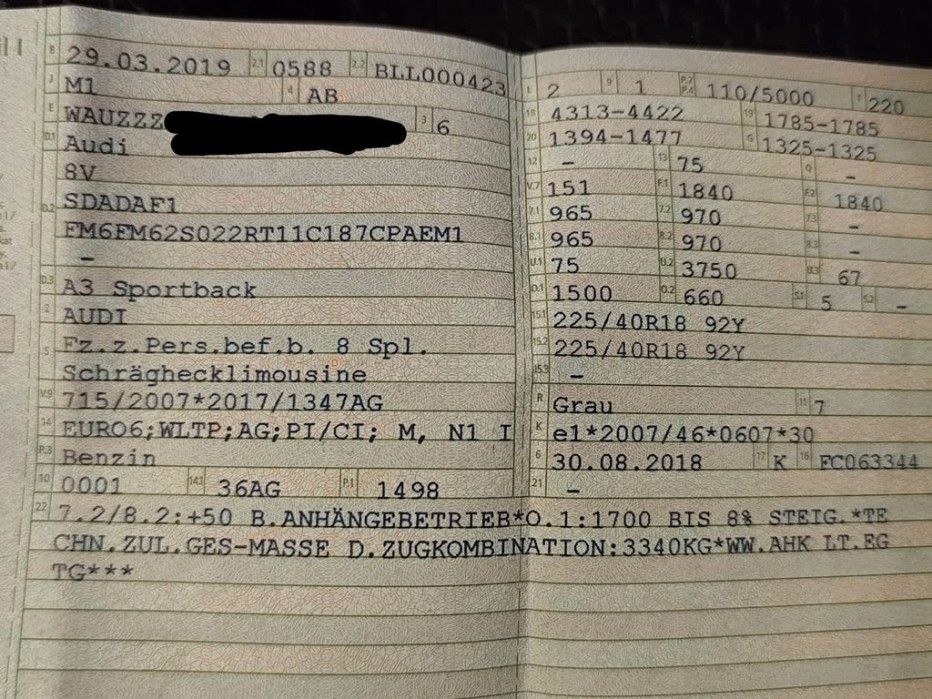 B 29.03.2019 2.1 0588 2.2 BLL000423
J M1 4 AB
E WAUZZZ 3 6
D.1 Audi
8V
D.2 SDADAF1
FM6FM62S022RT11C187CPAEM1
–
D.3 A3 Sportback
2 AUDI
5 Fz.z.Pers.bef.b. 8 Spl.
Schräghecklimousine
V.9 715/2007*2017/1347AG
14 EURO6;WLTP;AG;PI/CI; M, N1 I
P.3 Benzin
10 0001 14.1 36AG P.1 1498
L 2 9 1 P.2 P.4 110/5000 T 220
18 4313–4422 19 1785–1785
20 1394–1477 G 1325–1325
12 – 13 75 Q –
V.7 151 F.1 1840 F.2 1840
7.1 965 7.2 970 7.3 –
8.1 965 8.2 970 8.3 –
U.1 75 U.2 3750 U.3 67
O.1 1500 O.2 660 S.1 5 S.2 –
15.1 225/40R18 92Y
15.2 225/40R18 92Y
15.3 –
R Grau 11 7
K e1*2007/46*0607*30
6 30.08.2018 17 K 16 FC063344
21 –
22 7.2/8.2:+50 B.ANHÄNGEBETRIEB*O.1:1700 BIS 8% STEIG.*TE
CHN.ZUL.GES-MASSE D.ZUGKOMBINATION:3340KG*WW.AHK LT.EG
TG***